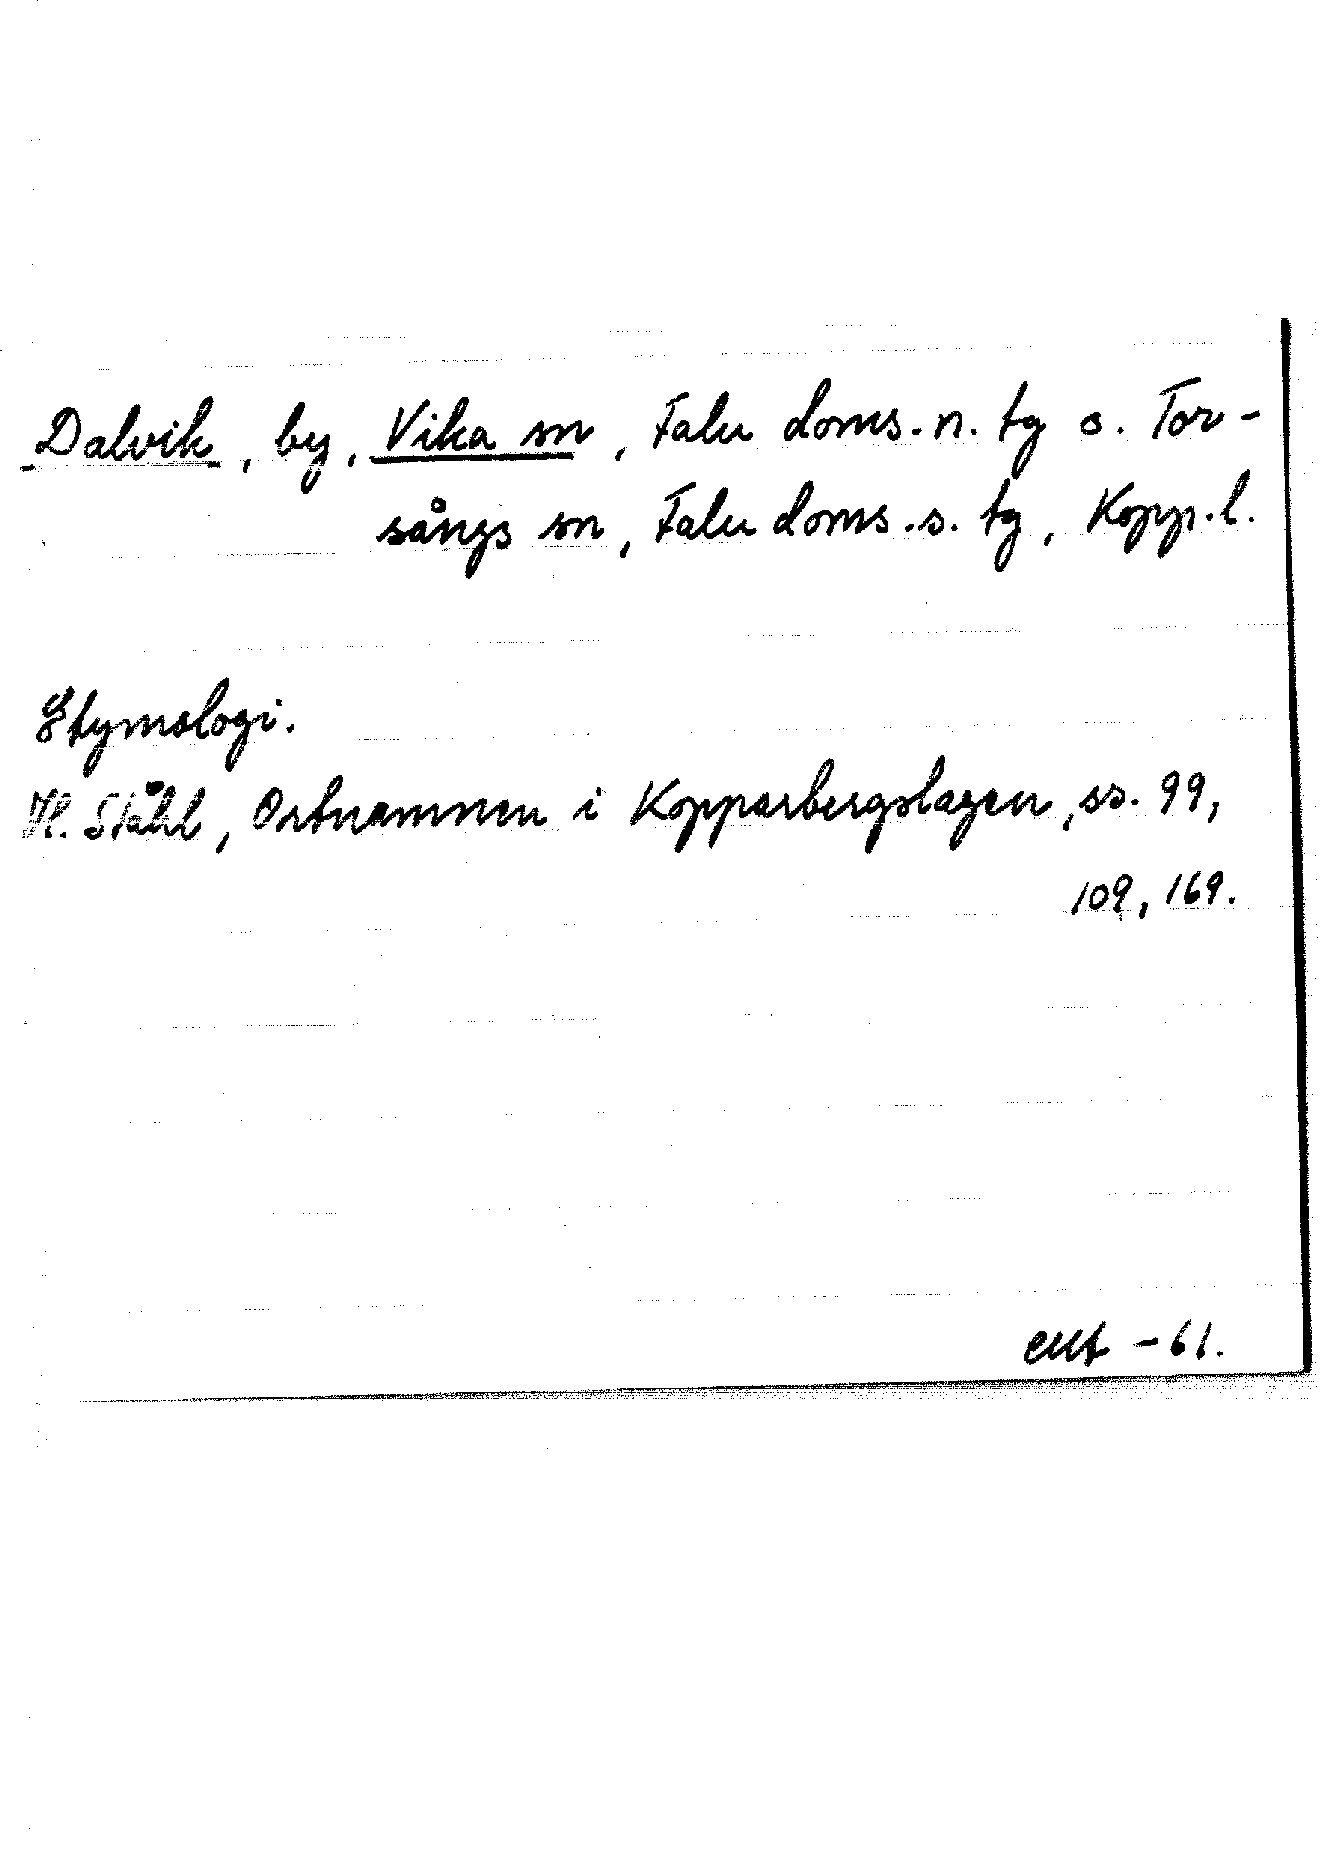 Dalvik, by, Vika sn, Falu doms. n. tg o. Tor-
sångs sn, Falu doms. s. tg, Kopp. l.
Etymologi.
H. Ståhl, Ortnamnen i Kopparbergslagen, ss. 99,
109, 169.
-61.